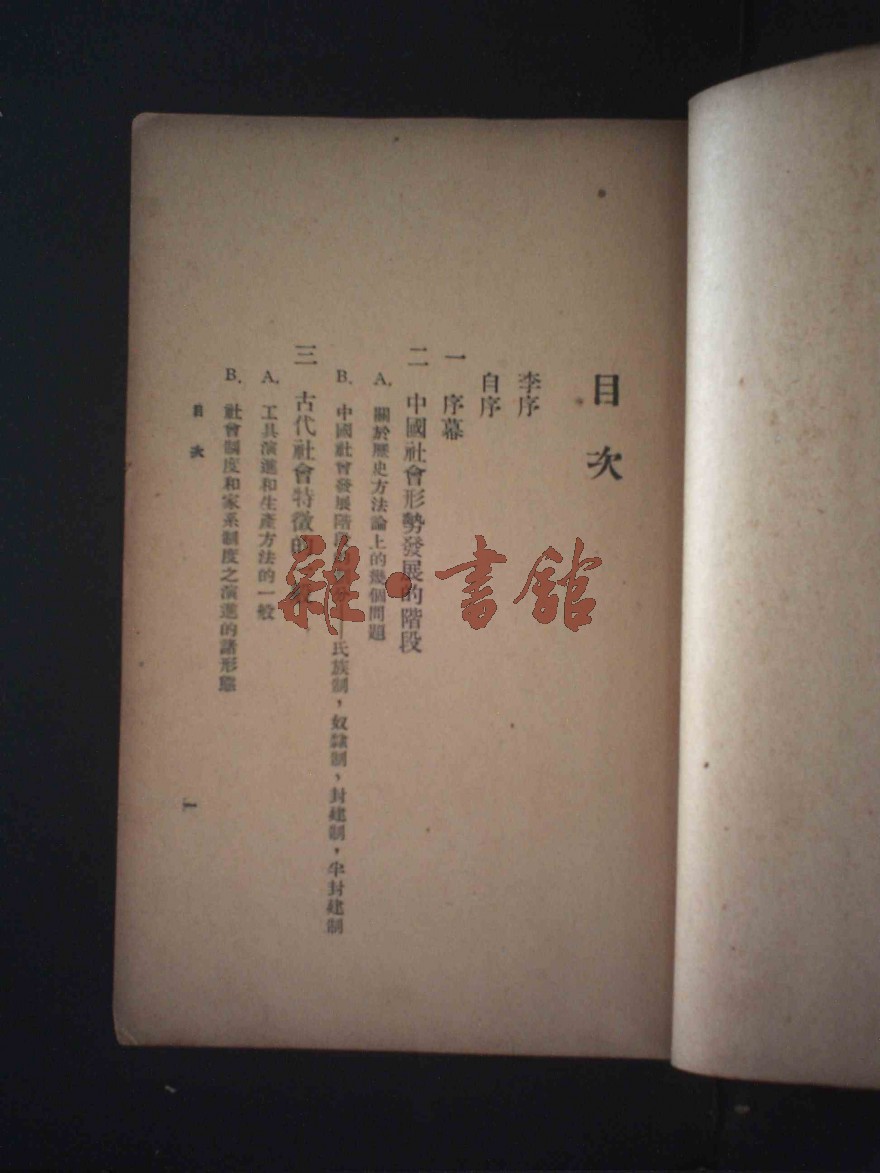 目次
李序
自序
一 序幕
二 中國社會形勢發展的階段
A. 關於歷史方法論上的幾個問題
B. 中國社會發展階段 分——氏族制，奴隸制，封建制，半封建制
三 古代社會特徵的一
A. 工具演進和生產方法的一般
B. 社會制度和家系制度之演進的諸形態
目次
1
雜·書館